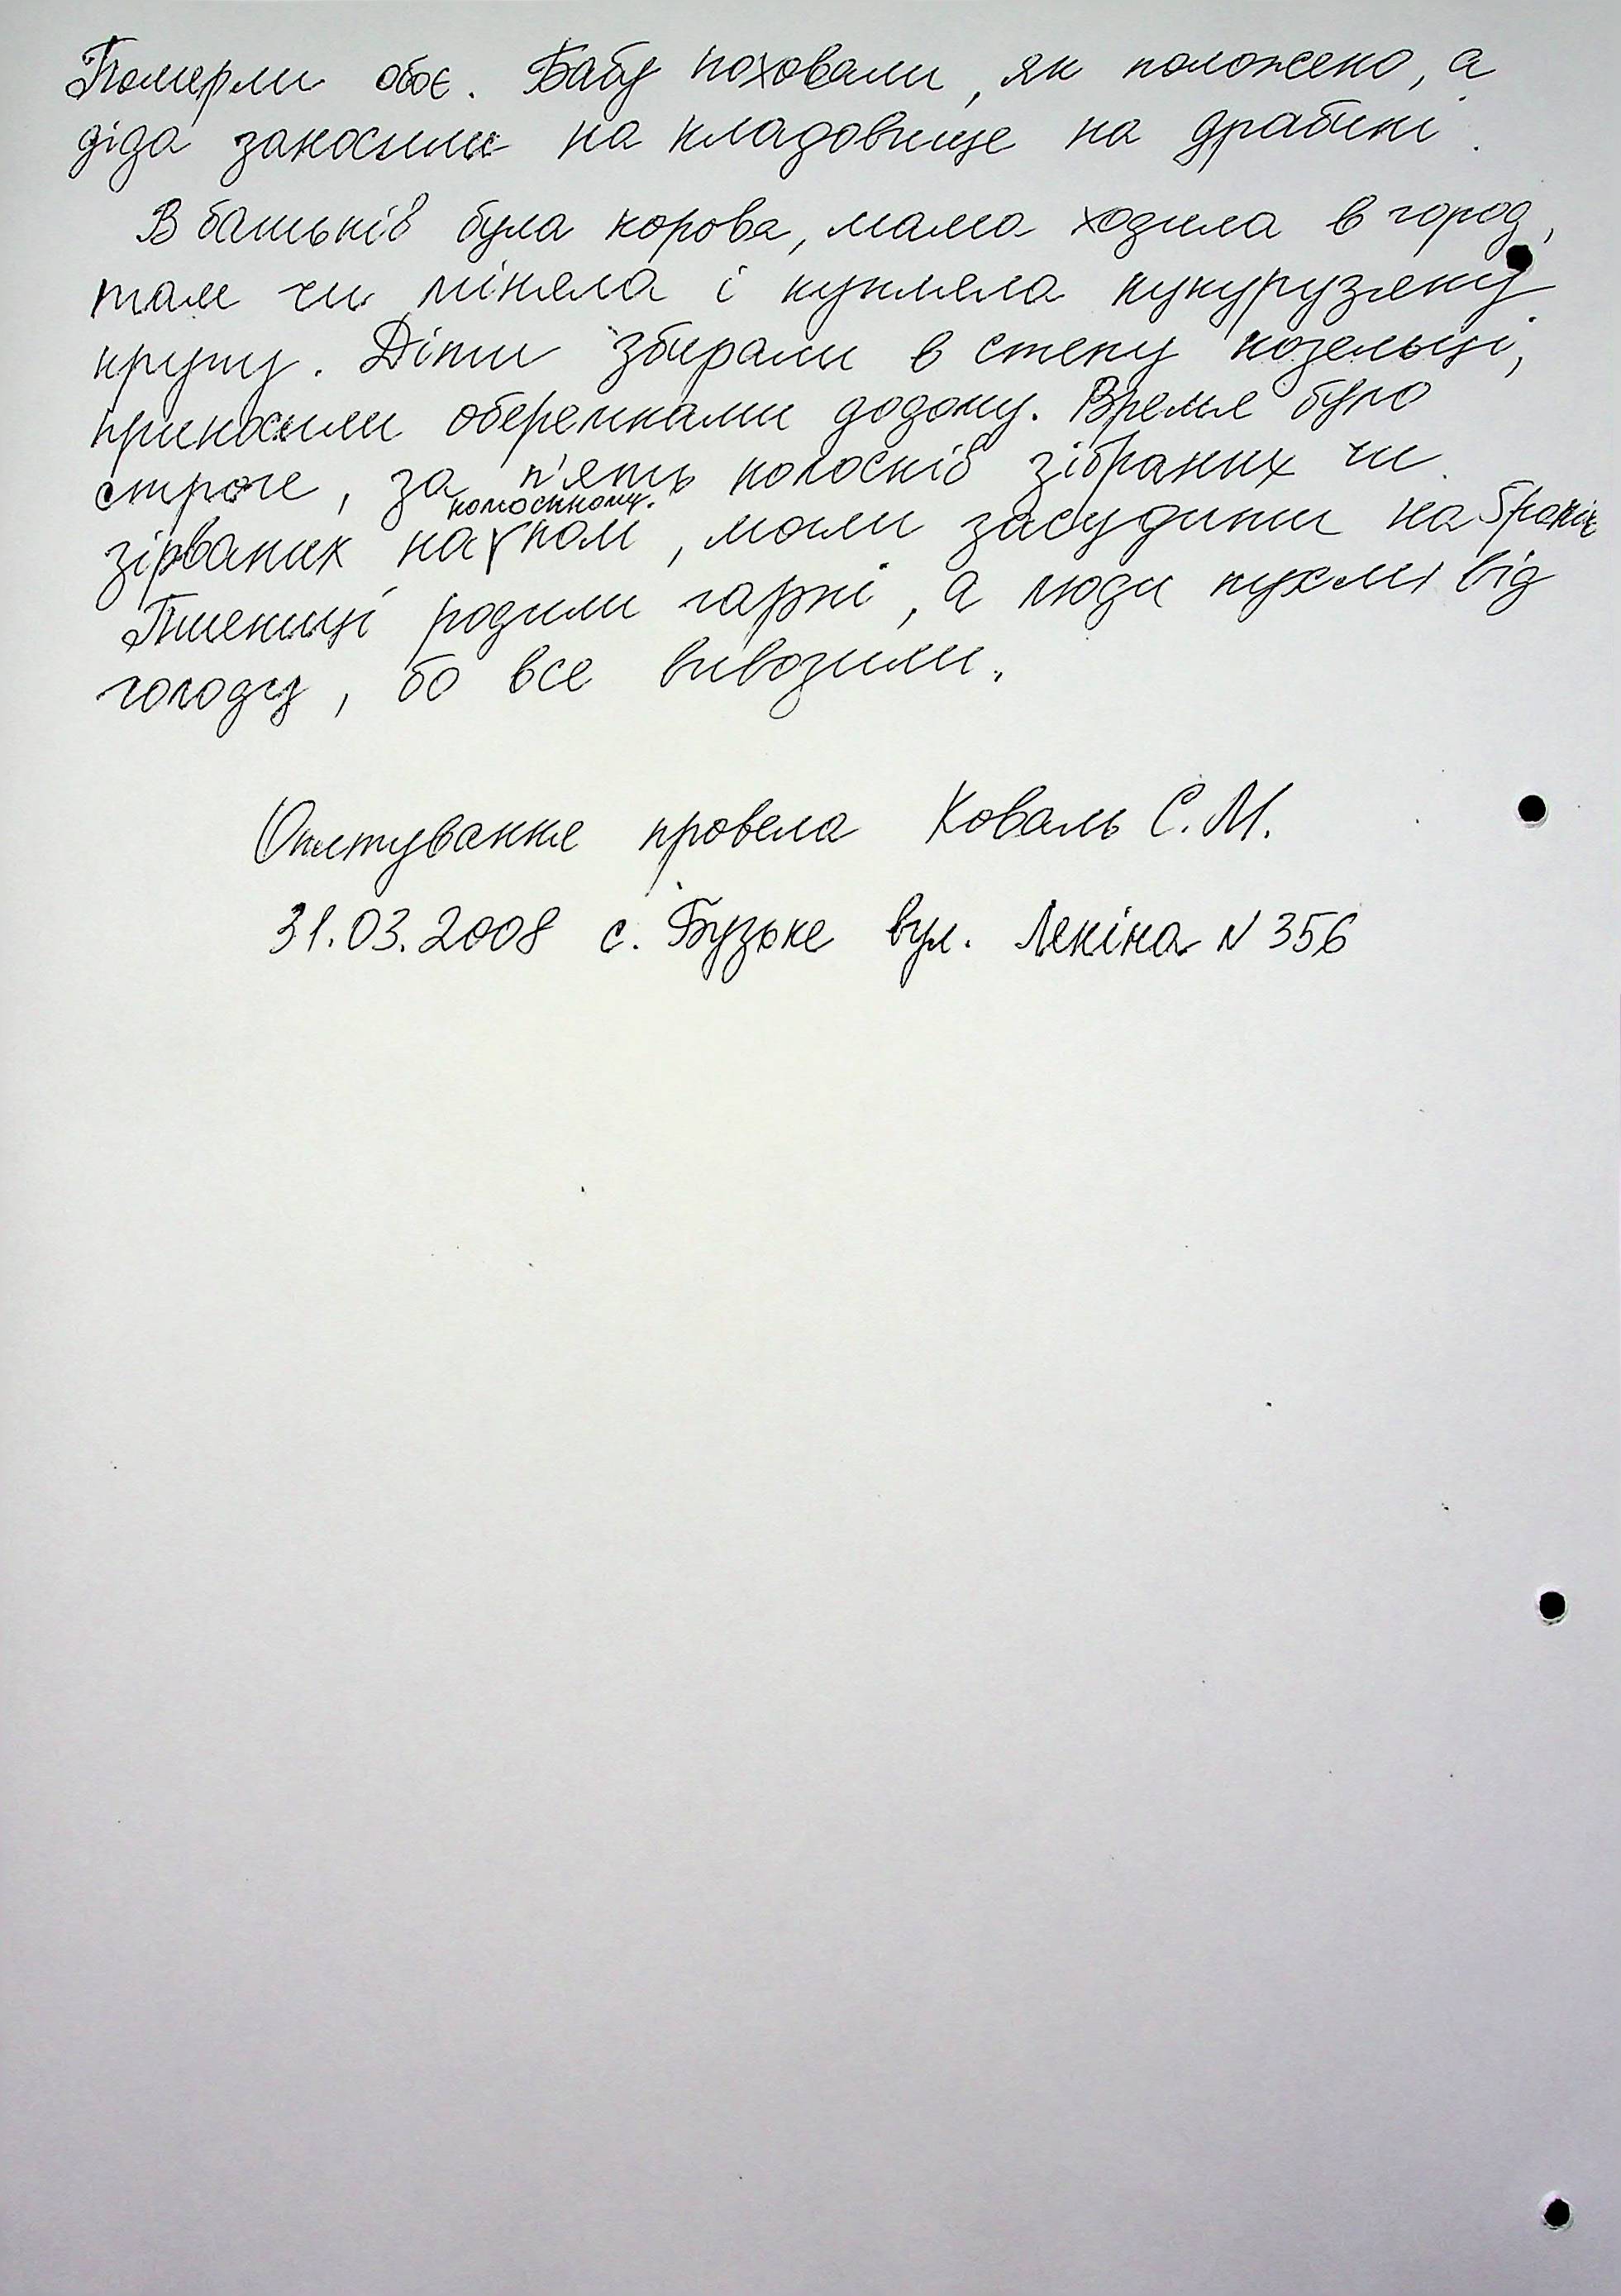 Померли обоє. Бабу поховали, як положено, а
діда заносили на кладовище на драбині.
В батьків була корова, мама ходила в город,
там чи міняла і купляла кукурузяну
крупу. Діти збирали в степу козельці,
приносили оберемками додому. Время було
строге, за п'ять колосків зібраних чи
колоскному.
зірваних на полі, могли засудити на 5 років
Пшениці родили гарні, а люди пухли від
голоду, бо все вивозили.
Опитування провела Коваль С.М.
31.03.2008 с. Бузьке вул. Леніна N 356